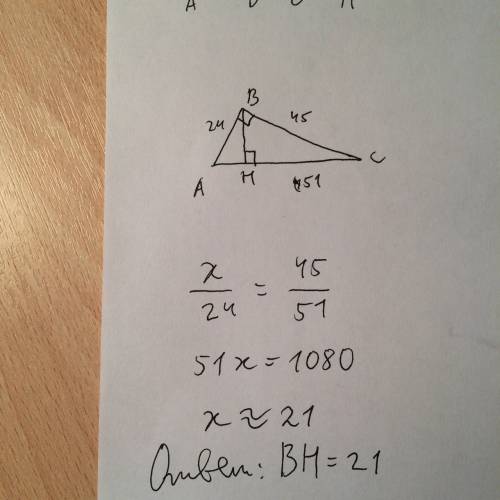 B
24 45
A H 51 C
x/24 = 45/51
51x = 1080
x ≈ 21
Ответ: BH = 21